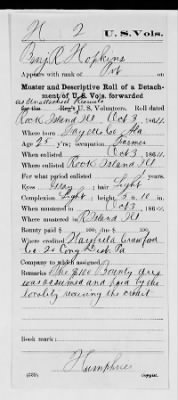 H 2 U.S. Vols.
Benj. R Hopkins
Appears with rank of Pvt
Master and Descriptive Roll of a Detach-
ment of U.S. Vols. forwarded
as Unattached Recruits
for U.S. Volunteers. Roll dated
Rock Island Ill Oct 3, 1864.
Where born Fayette Co Ala
Age 25 y'rs; occupation Farmer
When enlisted Oct 3, 1864.
Where enlisted Rock Island Ill
For what period enlisted years.
Eyes ; hair Light
Complexion Light; 5 ft. 10 in.
When mustered in Oct 3, 1864.
Where mustered in R Island Ill
Bounty paid $ 100; due $ 100
Where credited Hayfield Crawford
Co 20 Cong Dist. Pa
Company to which assigned
Remarks: The Bounty
was assumed and paid by the
locality receiving the credit
Book mark:
Humphries
Copyist.